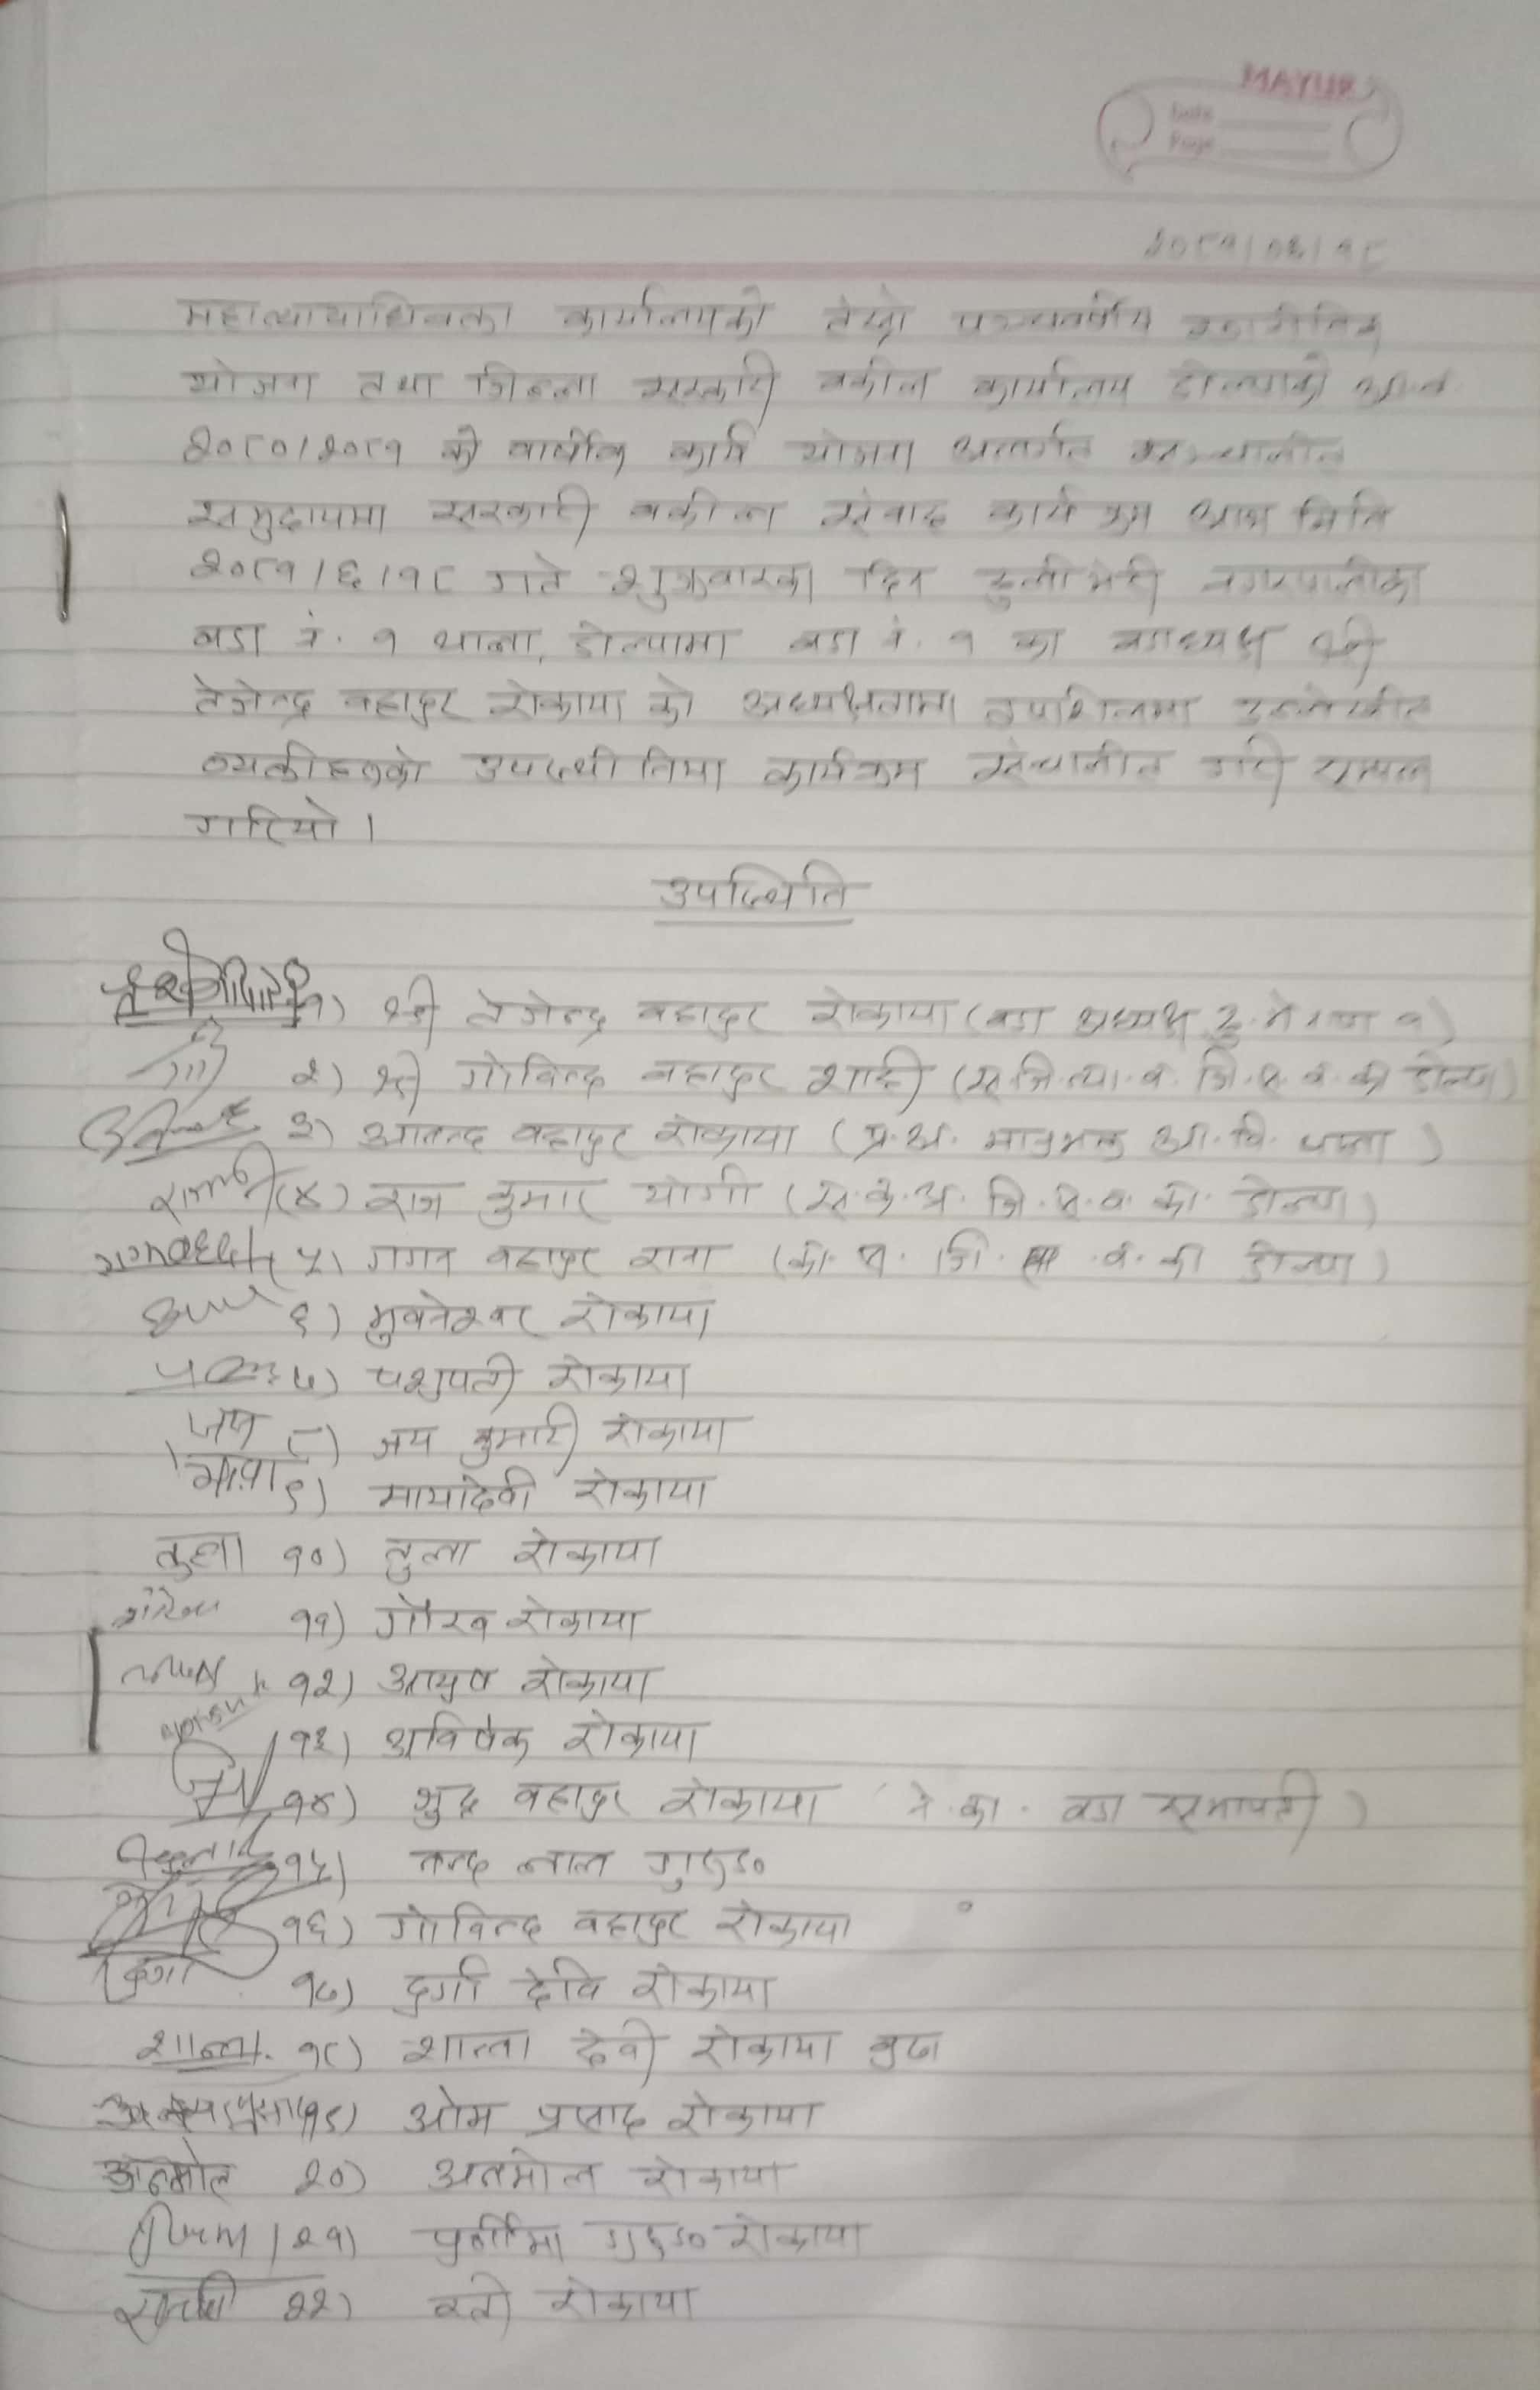 MAYUR
Date
Page
२०८१।०६।१८
महान्यायाधिवक्ता कार्यालयको तेस्रो पञ्चवर्षीय रणनीतिक
योजना तथा जिल्ला सरकारी वकील कार्यालय डोल्पाको आ.व
२०८०।२०८१ को वार्षीक कार्य योजना अन्तर्गत सञ्चालीत
समुदायमा सरकारी वकील संवाद कार्यक्रम आज मिति
२०८१।६।१८ गते शुक्रवारका दिन ठुलीभेरी नगरपालीका
वडा नं. १ थाला, डोल्पामा वडा नं. १ का वडाध्यक्ष श्री
तेजेन्द्र बहादुर रोकाया को अध्यक्षतामा तपशिलमा उल्लेखीत
व्यक्तीहरुको उपस्थीतिमा कार्यक्रम संचालीत गरी सम्पन्न
गरियो।
उपस्थिति
१) श्री तेजेन्द्र बहादुर रोकाया (वडा अध्यक्ष ठु.भे.न.पा १)
२) श्री गोविन्द बहादुर शाही (स.जि.न्या.व. जि.स.व.का डोल्पा)
३) आनन्द बहादुर रोकाया (प्र.अ. आ.वि.)
४) राज कुमार योगी (स.क.अ. जि.स.व.का. डोल्पा)
५) गगन बहादुर राना (का.स. जि.स.व.का डोल्पा)
६) भुवनेश्वर रोकाया
७) पशुपती रोकाया
जय ८) जय कुमारी रोकाया
माया ९) मायादेवी रोकाया
तुला १०) तुला रोकाया
११) गौरव रोकाया
१२) आयुष रोकाया
१३) अविषेक रोकाया
१४) भुद्र बहादुर रोकाया (ने.का. वडा सभापती)
१५) नन्द लाल गुरुङ
१६) गोविन्द बहादुर रोकाया
दुर्गा १७) दुर्गा देवि रोकाया
शान्ता १८) शान्ता देवी रोकाया बुढा
१९) ओम प्रसाद रोकाया
अनमोल २०) अनमोल रोकाया
२१) पुर्नीमा गुरुङ रोकाया
२२) रोकाया